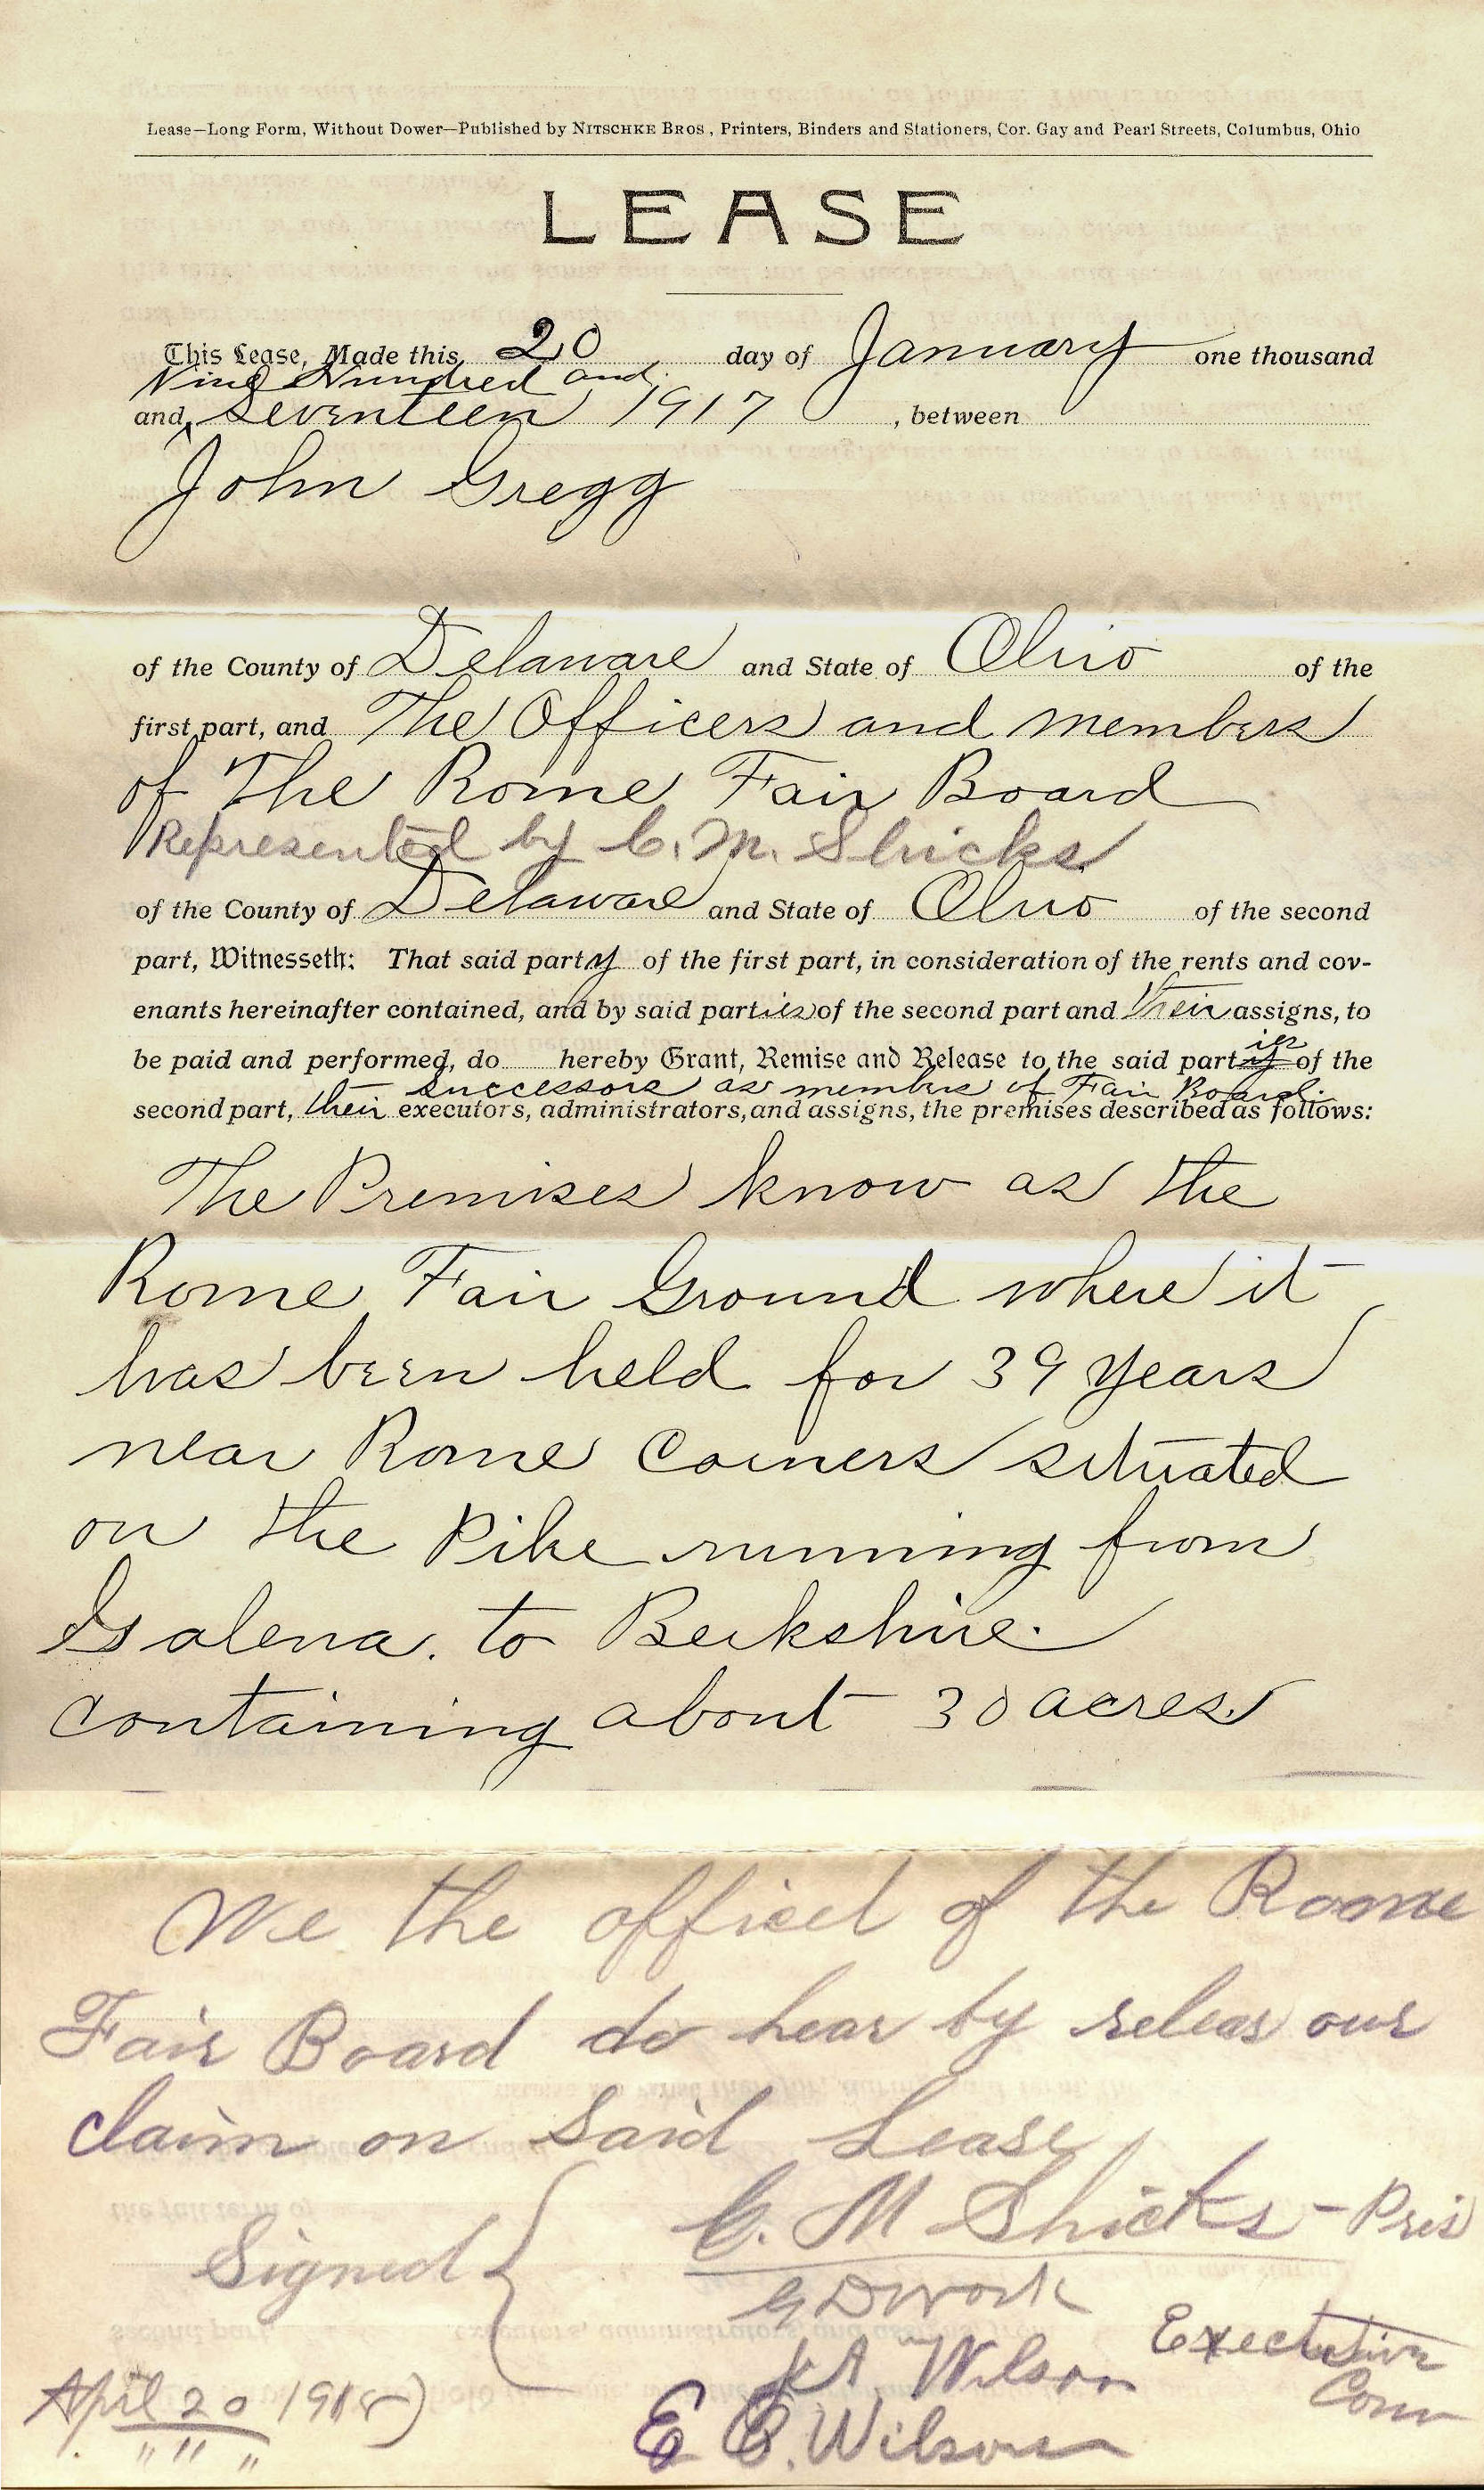 Lease—Long Form, Without Dower—Published by NITSCHKE BROS., Printers, Binders and Stationers, Cor. Gay and Pearl Streets, Columbus, Ohio
LEASE
This Lease, Made this 20 day of January one thousand
Nine Hundred and
and Seventeen 1917, between
John Gregg
of the County of Delaware and State of Ohio of the
first part, and The Officers and members
of The Rome Fair Board
Represented by C. M. Shicks
of the County of Delaware and State of Ohio of the second
part, Witnesseth: That said party of the first part, in consideration of the rents and cov-
enants hereinafter contained, and by said parties of the second part and their assigns, to
be paid and performed, do hereby Grant, Remise and Release to the said parties of the
successors as members of Fair Board.
second part, their executors, administrators, and assigns, the premises described as follows:
The Premises know as the
Rome Fair Ground where it
has been held for 39 years
near Rome Corners situated
on the Pike running from
Galena. to Berkshire.
containing about 30 acres
We the officel of the Roome
Fair Board do hear by releas our
claim on said Lease
Signed { C. M Shicks - Pres
G D Work
J A. Wilson Executive
Com
E E. Wilson
April 20 1918)
" " "